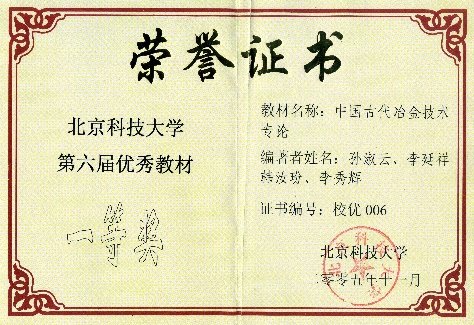 荣誉证书
北京科技大学
第六届优秀教材
一等奖
教材名称：中国古代冶金技术
专论
编著者姓名：孙淑云、李延祥
韩汝玢、李秀辉
证书编号：校优 006
北京科技大学
二〇〇五年十一月